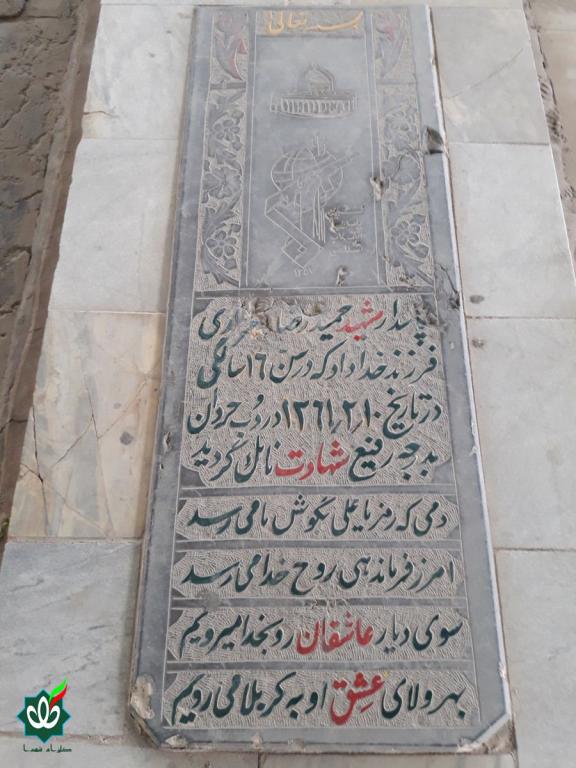 بسمه تعالی
۱۳۵۷
پاسدار شهید حمید رضا
فرزند خداداد که در سن ۱۶ سالگی
در تاریخ ۱۳۶۱٫۲٫۱۰ در دوب حردان
بدرجه رفیع شهادت نائل گردید
دمی که رمز یا علی بگوش ما می رسد
امر ز فرماندهی روح خدا می رسد
سوی دیار عاشقان رو بخدا میرویم
بهر ولای عشق او به کربلا می رویم
گلزار شهدا